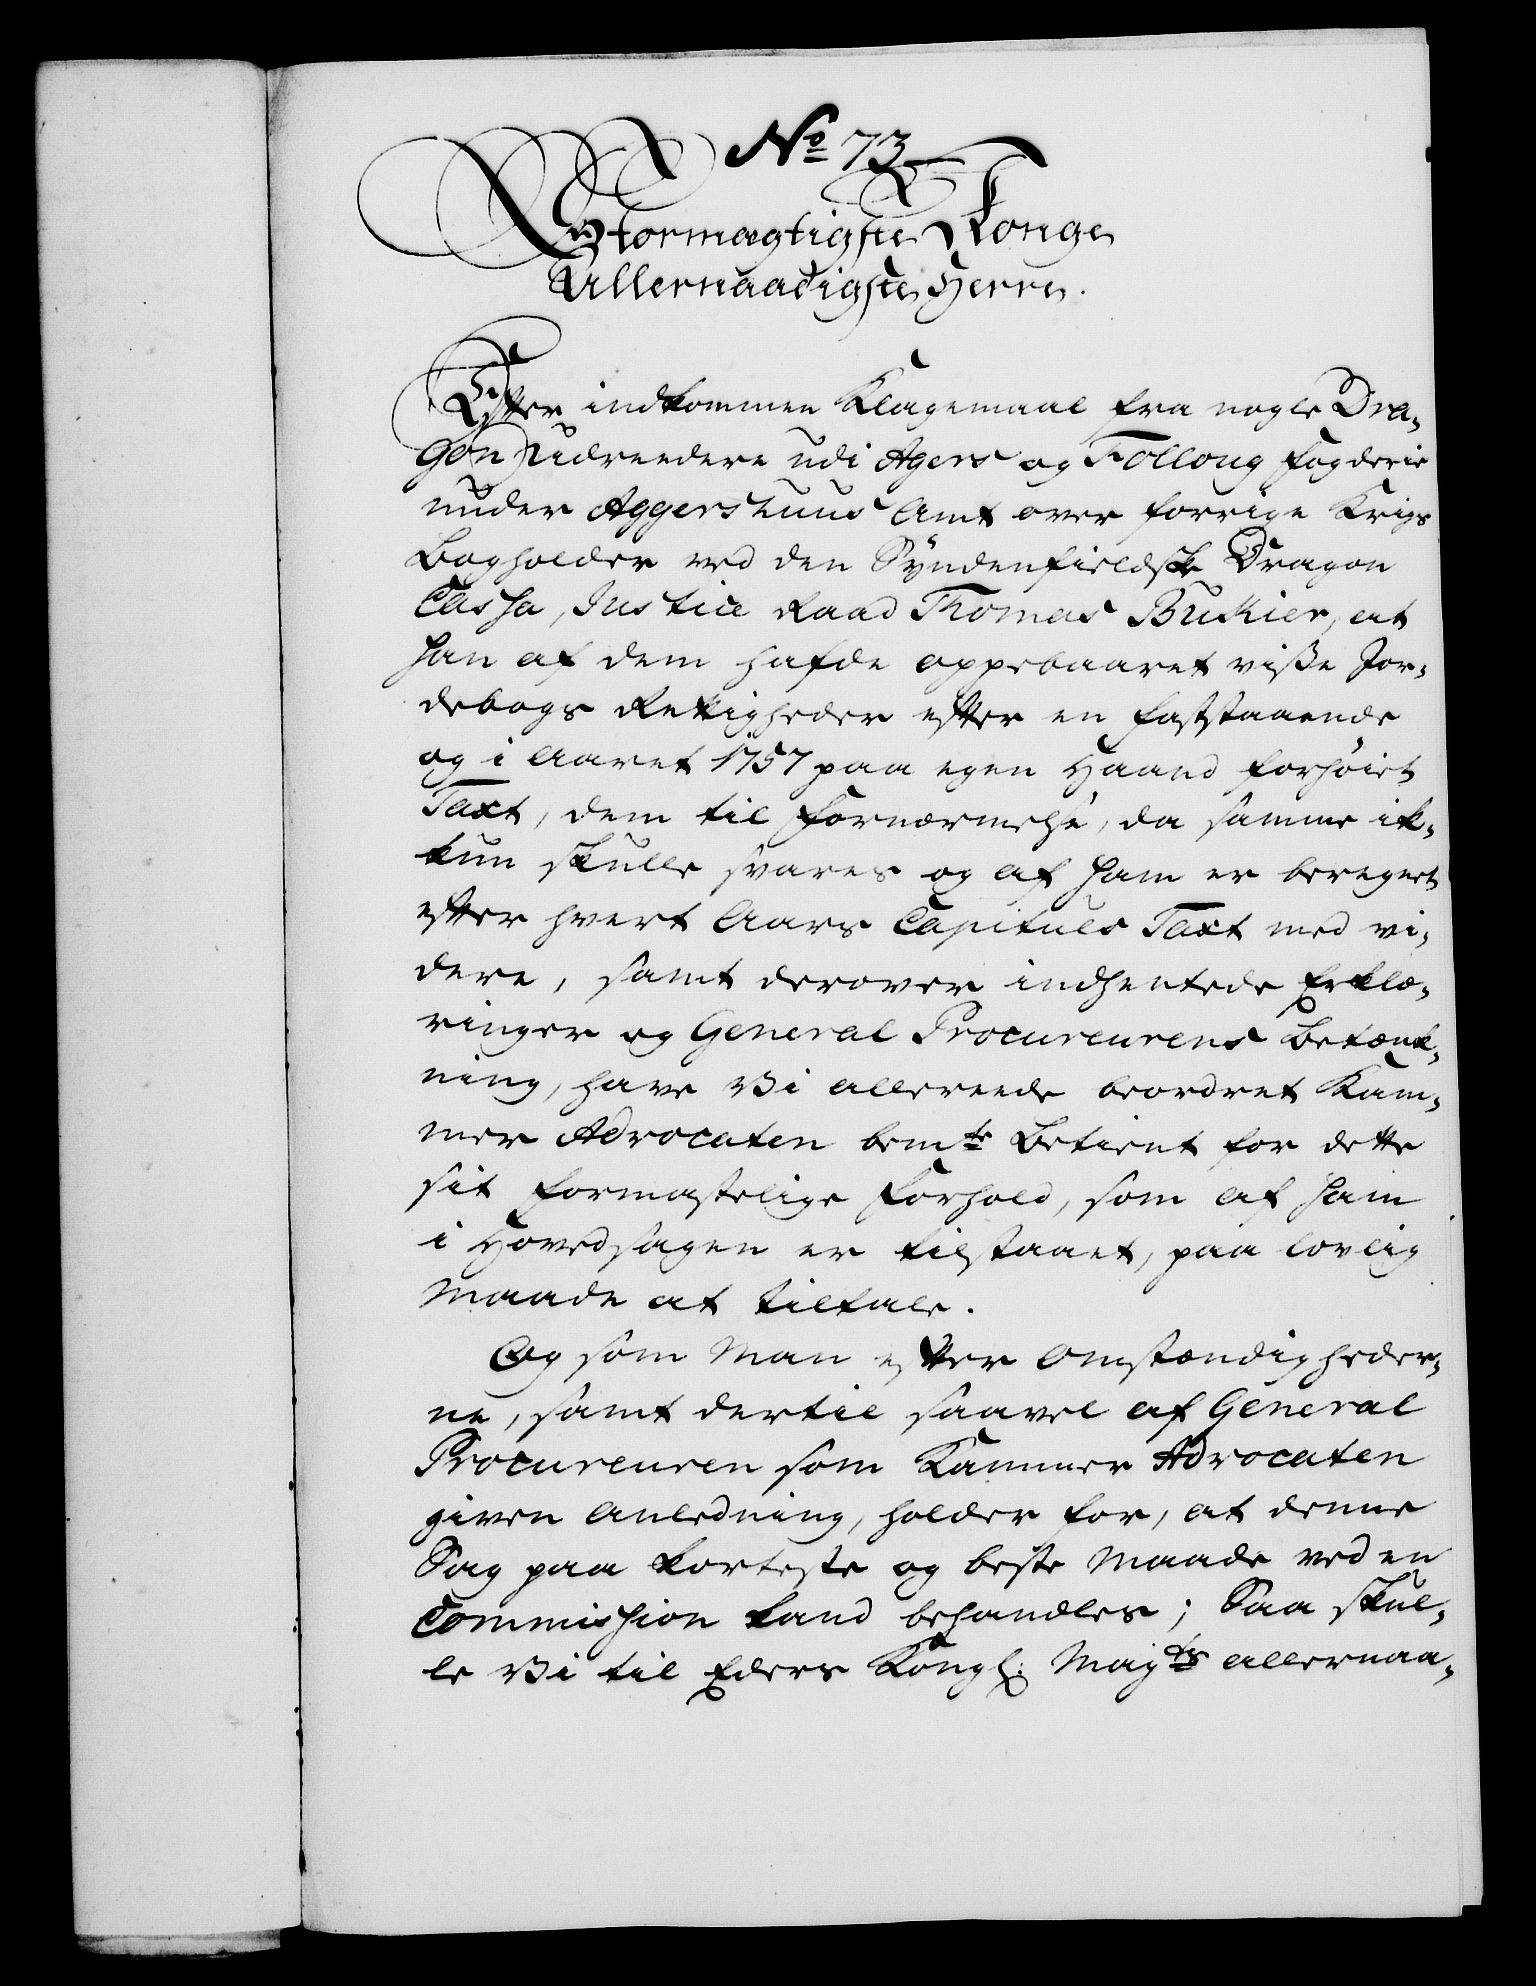 No 73
Stormægtigste Konge
Allernaadigste Herre.
Efter indkommen Klagemaal fra nogle Dra-
gon udreedere udi Agers og Follong Fogderie
under Aggershuus Amt over forrige Krigs
Bogholder ved den Syndenfieldske Dragon
Cassa, Justice Raad Thomas Bukier, at
han af dem hafde oppebaaret viße Jor-
debogs Rettigheder efter en faststaaende
og i Aaret 1757 paa egen Haand forhøiet
Taxt, dem til Fornærmelse, da samme ik-
kun skulle svares og af ham er beregnet
efter hvert Aars Capituls Taxt med vi-
dere, samt derover indhentede Erklæ-
ringer og General Procureurens Betænk-
ning, have Vi allereede beordret Kam-
mer Advocaten bemte Betient for dette
sit formastelige Forhold, som af ham
i Hovedsagen er tilstaaet, paa lovlig
Maade at tiltale.
Og som Man efter Omstændigheder-
ne, samt dertil saavel af General
Procureuren som Kammer Advocaten
given Anledning, holder for, at denne
Sag paa korteste og beste Maade ved en
Commission kand behandles; Saa skul-
le Vi til Eders Kongl: Mayts allernaa-